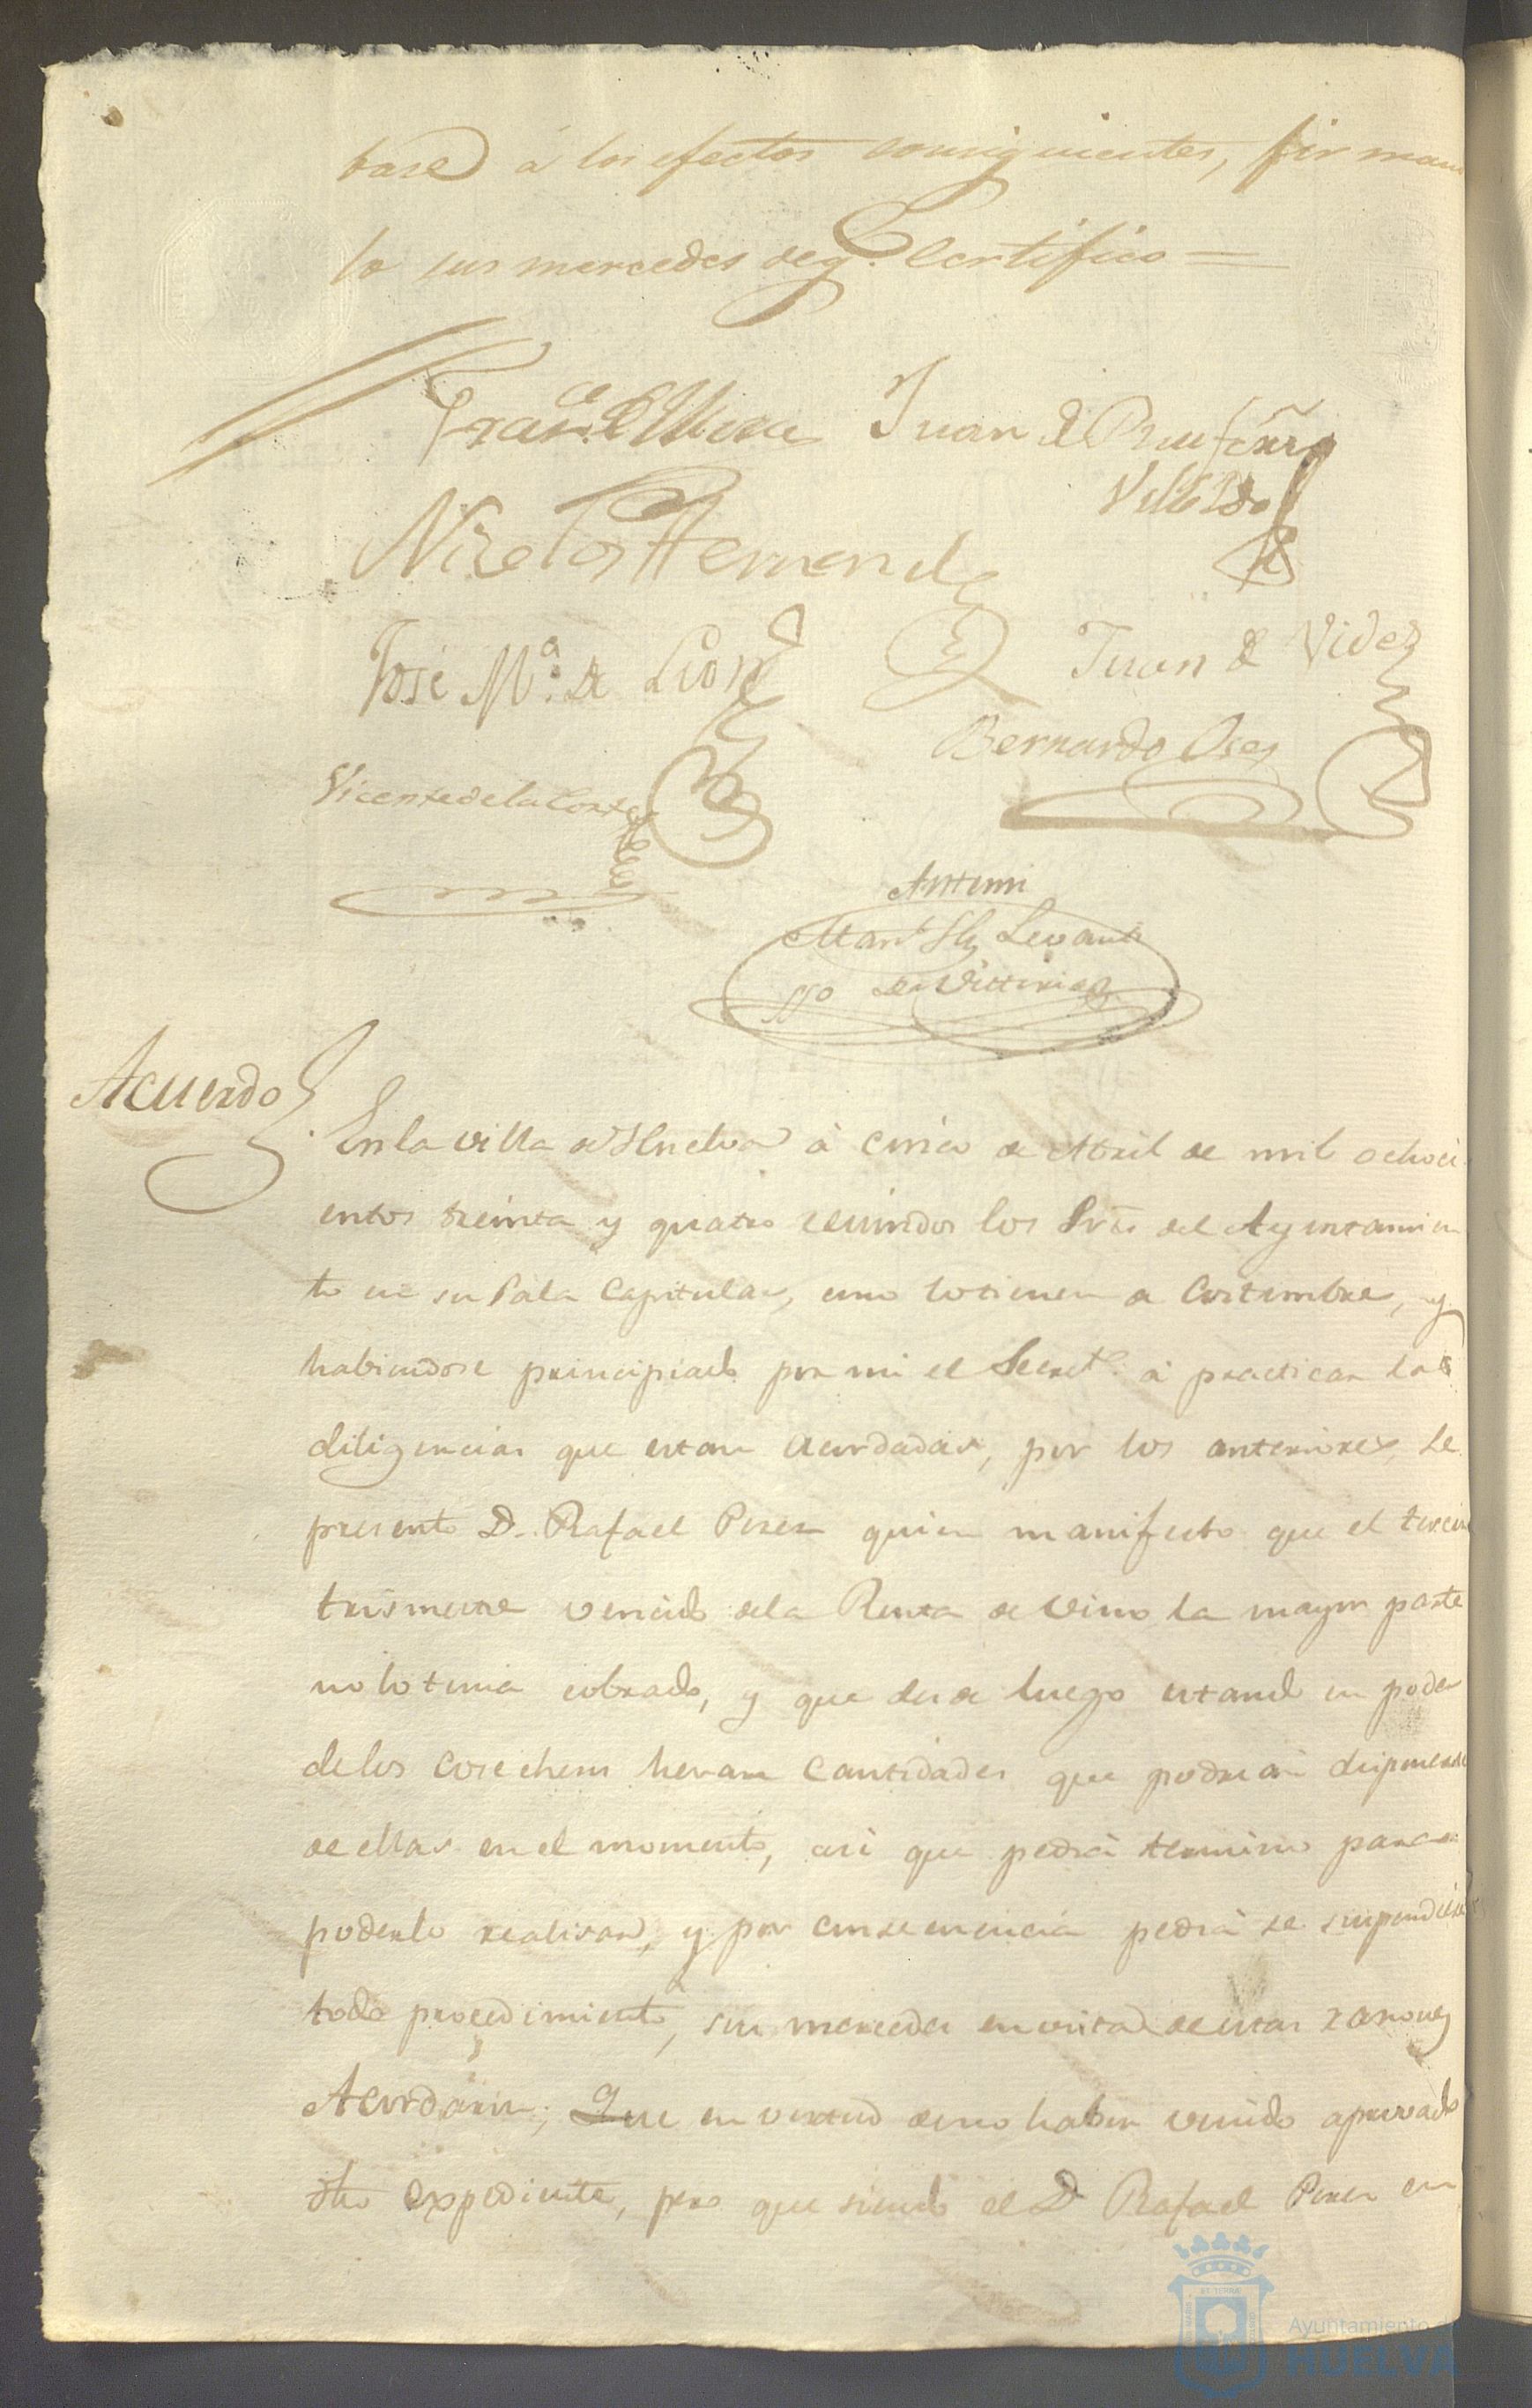 base á los efectos consiguientes, firman
lo sus mercedes deq. Certifico =
Juan de
Nicolas Hernand
José Mª. de Leon
Juan de Videz
Bernardo Oses
Vicente de la Corte
Antemi
Man.l Levante
SSO de Vittoria
Acuerdo
En la villa de Huelva á cinco de Abril de mil ochoci
entos treinta y quatro reunidos los Sres del Ayuntamien
to en su Sala Capitular, como lo tienen de Costumbre, y
habiendose principiado por mi el Secret.o á practicar las
diligencias que estan acordadas, por los anteriores, se
presento D. Rafael Perez quien manifesto que el tercer
trismestre vencido dela Renta de Vino la mayor parte
no lo tenia cobrado, y que desde luego estando en poder
delos Cosecheros heran Cantidades que podrian disponerse
de ellas en el momento, asi que pedia termino para
poderlo realisar, y por consecuencia pedia se suspendiese
todo procedimiento, sus mercedes en vista de estas razones
Acordaron; Que en virtud de no haber venido aprovado
dho expediente, pero que siendo el D Rafael Perez en
Ayuntamiento
HUELVA